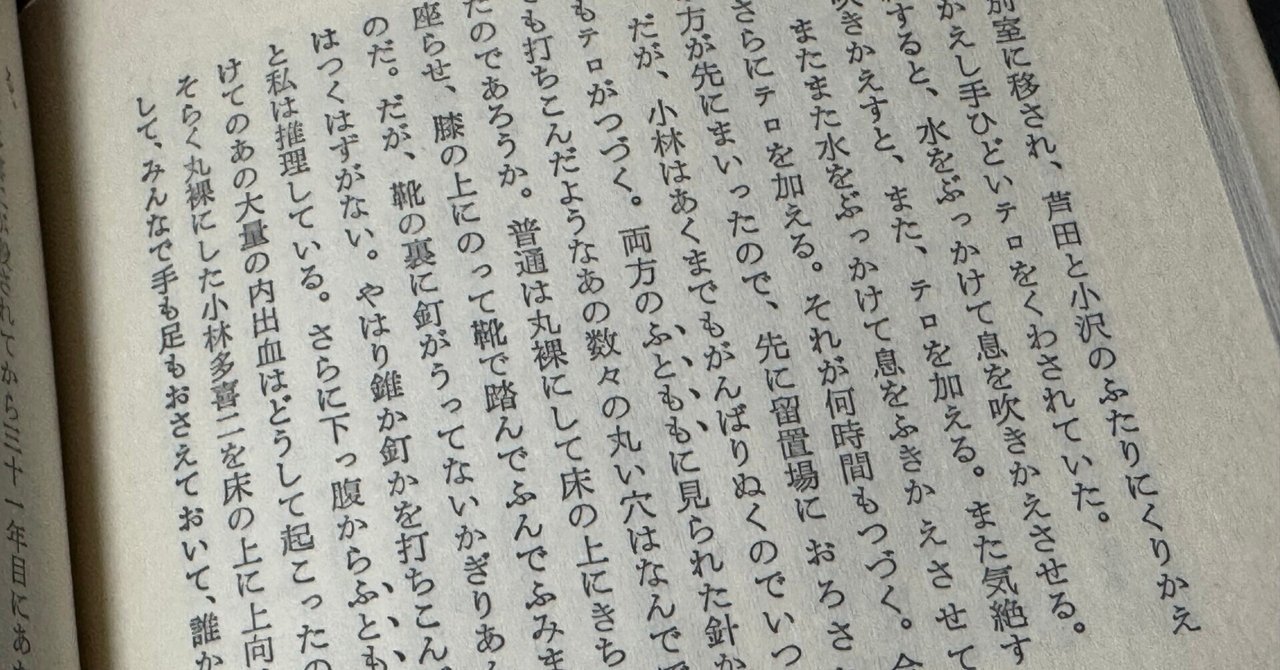 別室に移され、芦田と小沢のふたりにくりかえ
かえし手ひどいテロをくわされていた。
すると、水をぶっかけて息を吹きかえさせる。
吹きかえすと、また、テロを加える。また気絶す
またまた水をぶっかけて息をふきかえさせて
さらにテロを加える。それが何時間もつづく。
方が先にまいったので、先に留置場におろさ
だが、小林はあくまでもがんばりぬくのでいつ
もテロがつづく。両方のふとももに見られた針か
でも打ちこんだようなあの数々の丸い穴はなんで
たのであろうか。普通は丸裸にして床の上にきち
座らせ、膝の上にのって靴で踏んでふんでふみま
のだ。だが、靴の裏に釘がうってないかぎりあん
はつくはずがない。やはり錐か釘かを打ちこん
と私は推理している。さらに下っ腹からふとも
けてのあの大量の内出血はどうして起こったの
そらく丸裸にした小林多喜二を床の上に上向
して、みんなで手も足もおさえておいて、誰か
れてから三十一年目にあ